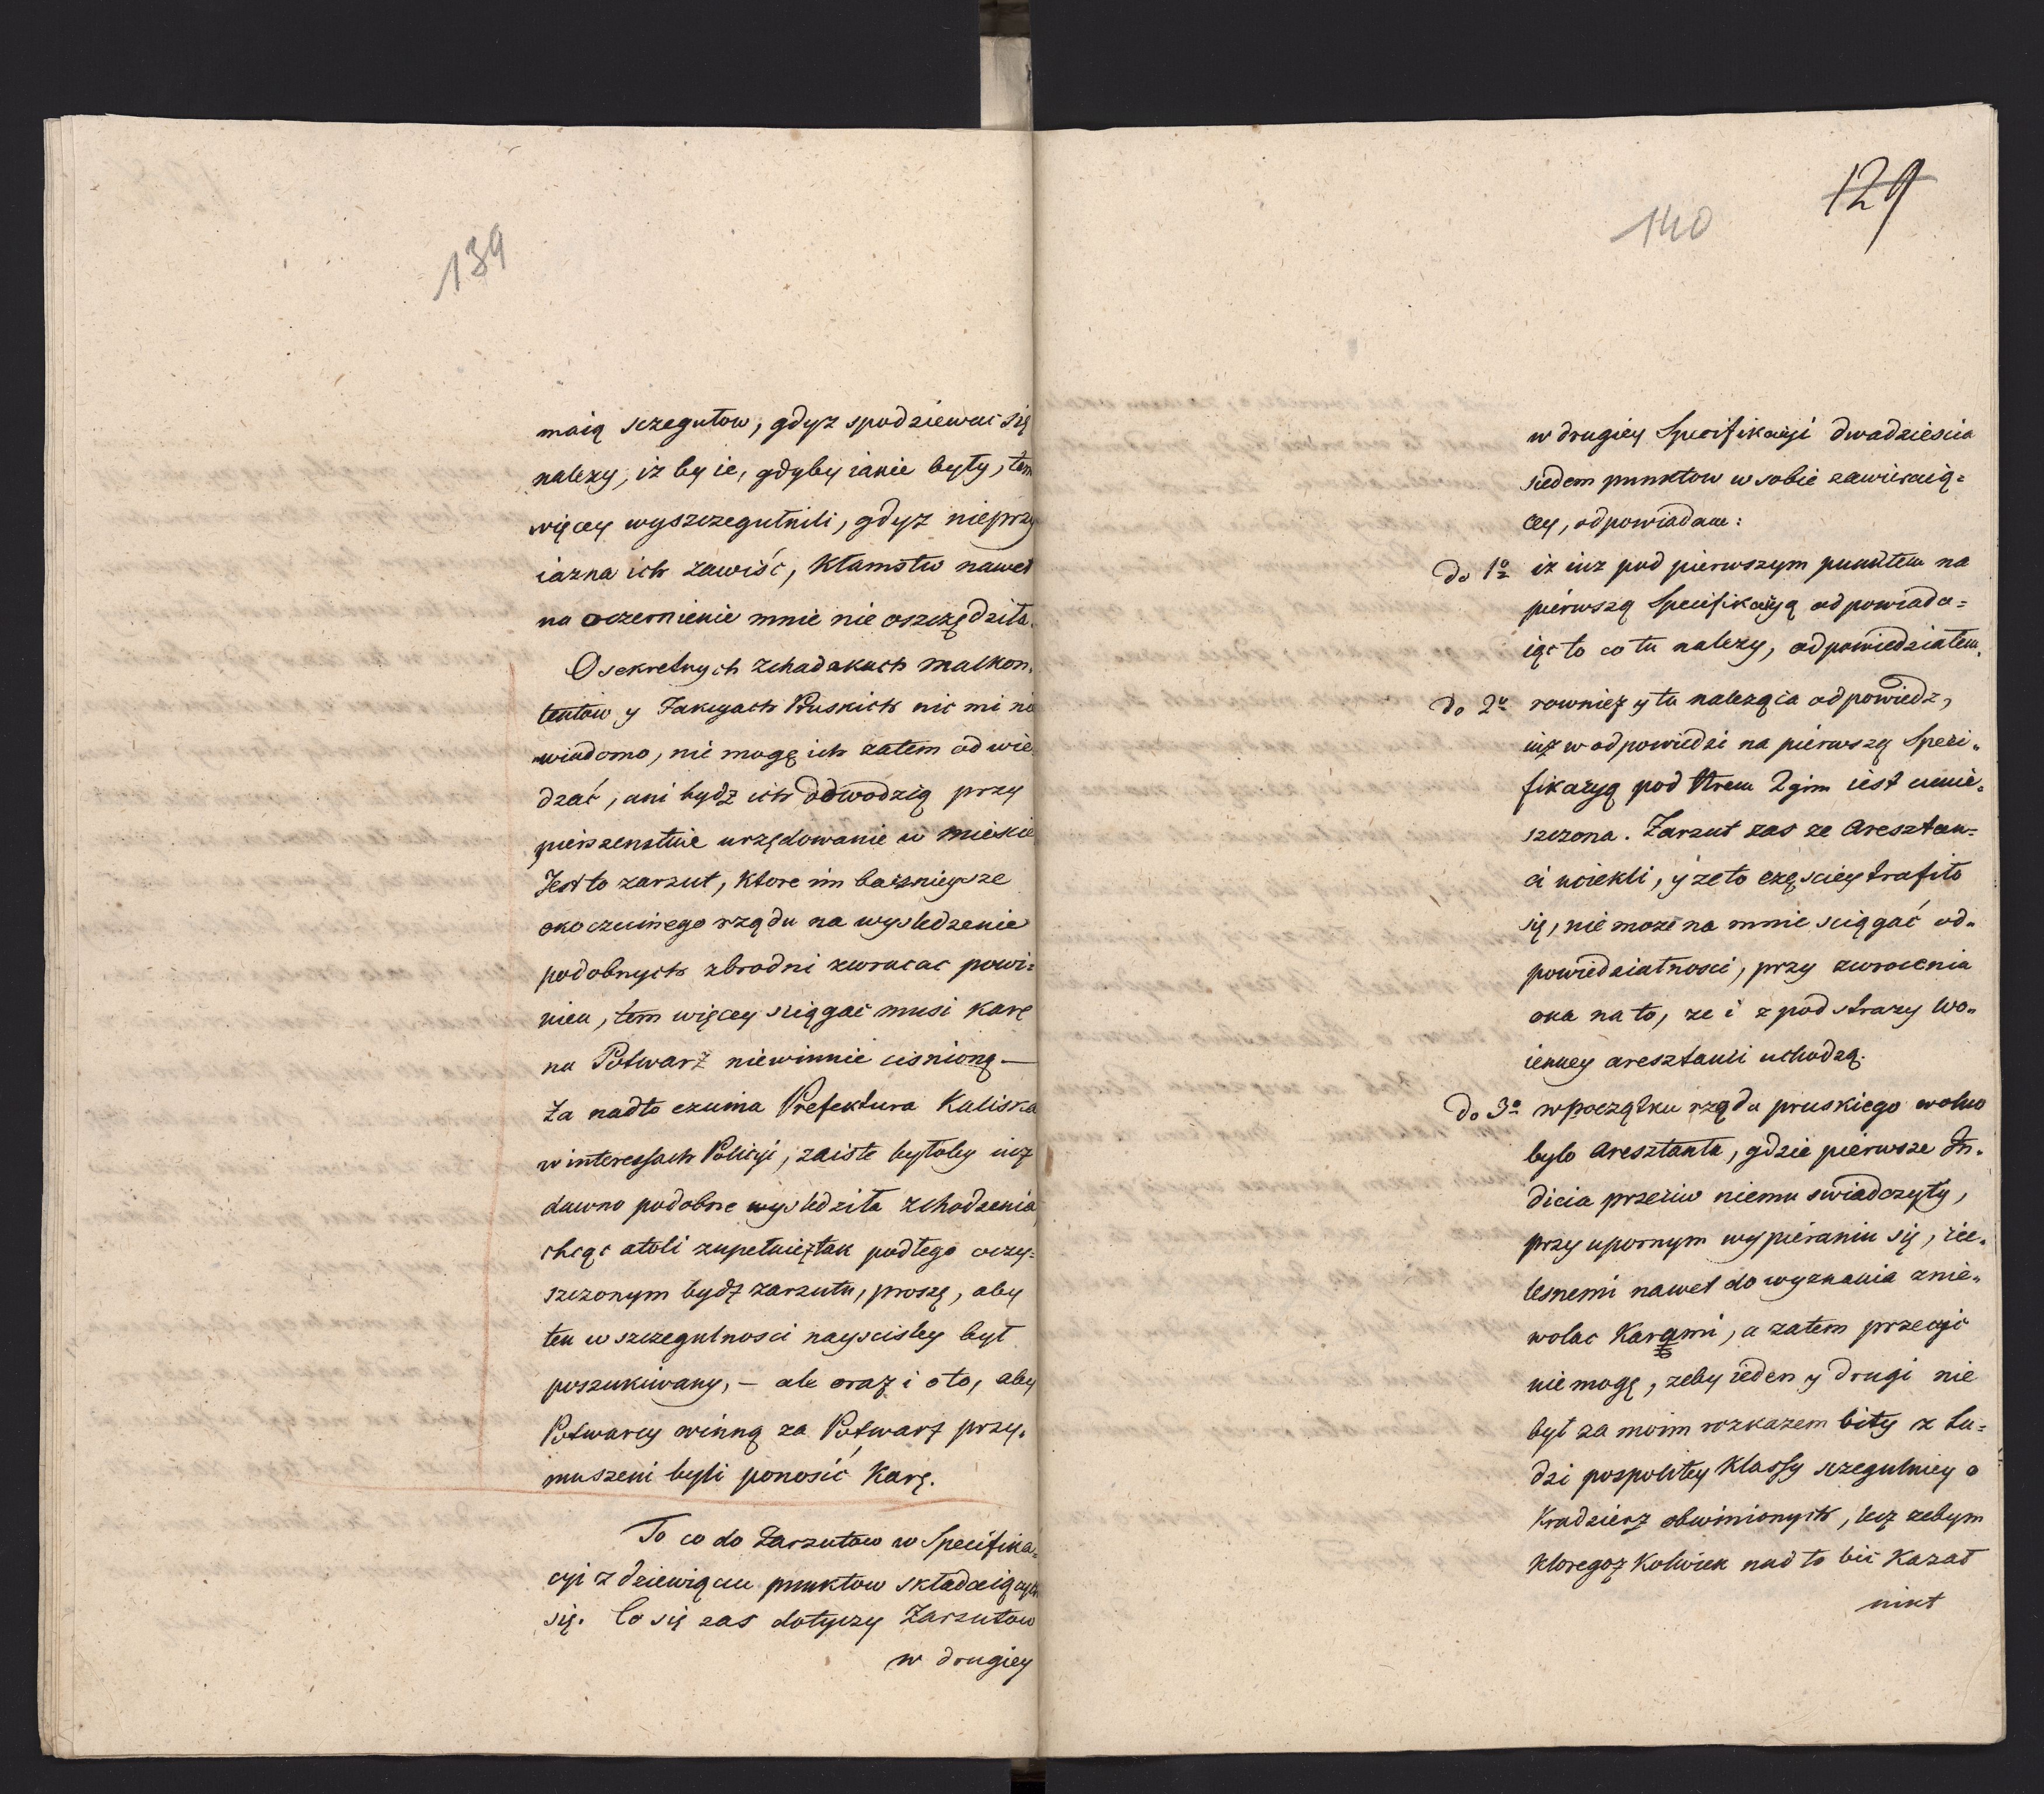 139
maią szegułow, gdyz spodziewac się
nalezy, iz by ie, gdyby iakie były, tem
więcey wyszczegulnili, gdyz nieprzy
iazna ich zawiść, kłamstw nawet
na oczernienie mnie nie oszczędziła.
O sekretnych zchadzkach malkon,
tentow y Pruskich nic mi nie
wiadomo, nie mogę ich zatem odwie
dzać, ani bydz ich odwodzią przy
pierszenstwie urzędowanie w miescie
Jest to zarzut, ktore im baczneysze
oko czuinego rządu na wysledzenie
podobnych zbrodni zwracac powi=
nien, tem więcey sciągac musi karę
na Potwarz niewinnie cisnioną —
Za nadto czuina Prefektura Kaliska
w interessach Policyi, zaiste byłoby iuz
dawno podobne wysledziła zchodzenia,
chcąc atoli zupełnie tak podłego oczy=
szczonym bydz zarzutu, proszę, aby
ten w szczegulnosci nayscisley był
poszukiwany, — ale oraz i oto, aby
Potwarcy winną za Potwarz przy,
muszeni byli ponosić karę.
To co do Zarzutow w Specifika=
cyi z dziewięciu punktow składaiących
się. Co się zas dotyczy Zarzutow
w drugiey
129
140
w drugiey Specifikacyi dwadziescia
siedem punktow w sobie zawieraią=
cey, odpowiadam:
do 1o iz iuz pod pierwszym punktem na
pierwszą Specifikacyą odpowiada=
iąc to co tu nalezy, odpowiedziałem.
do 2o rowniez y tu naleząca odpowiedz,
iuz w odpowiedzi na pierwszą Speci=
fikacyą pod Nrem 2gim iest umie=
szczona. Zarzut zas ze Aresztan=
ci uciekli, y ze to częsciey trafiło
się, nie moze na mnie sciągać od=
powiedzialnosci, przy zwrocenia
oka na to, ze i z pod strazy wo=
ienney aresztanci uchodzą.
do 3o w początku rządu pruskiego wolno
bylo Aresztanta, gdzie pierwsze In=
dicia przeciw niemu swiadczyły,
przy upornym wypieraniu się, cie=
lesnemi nawet do wyznania znie=
wolac karami, a zatem przeczyc
nie mogę, zeby ieden y drugi nie
był za moim rozkazem bity z Lu=
dzi pospolitey klassy szegulniey o
kradziez obwinionych, lecz zebym
ktoregoz kolwiek nad to bic kazał
nikt